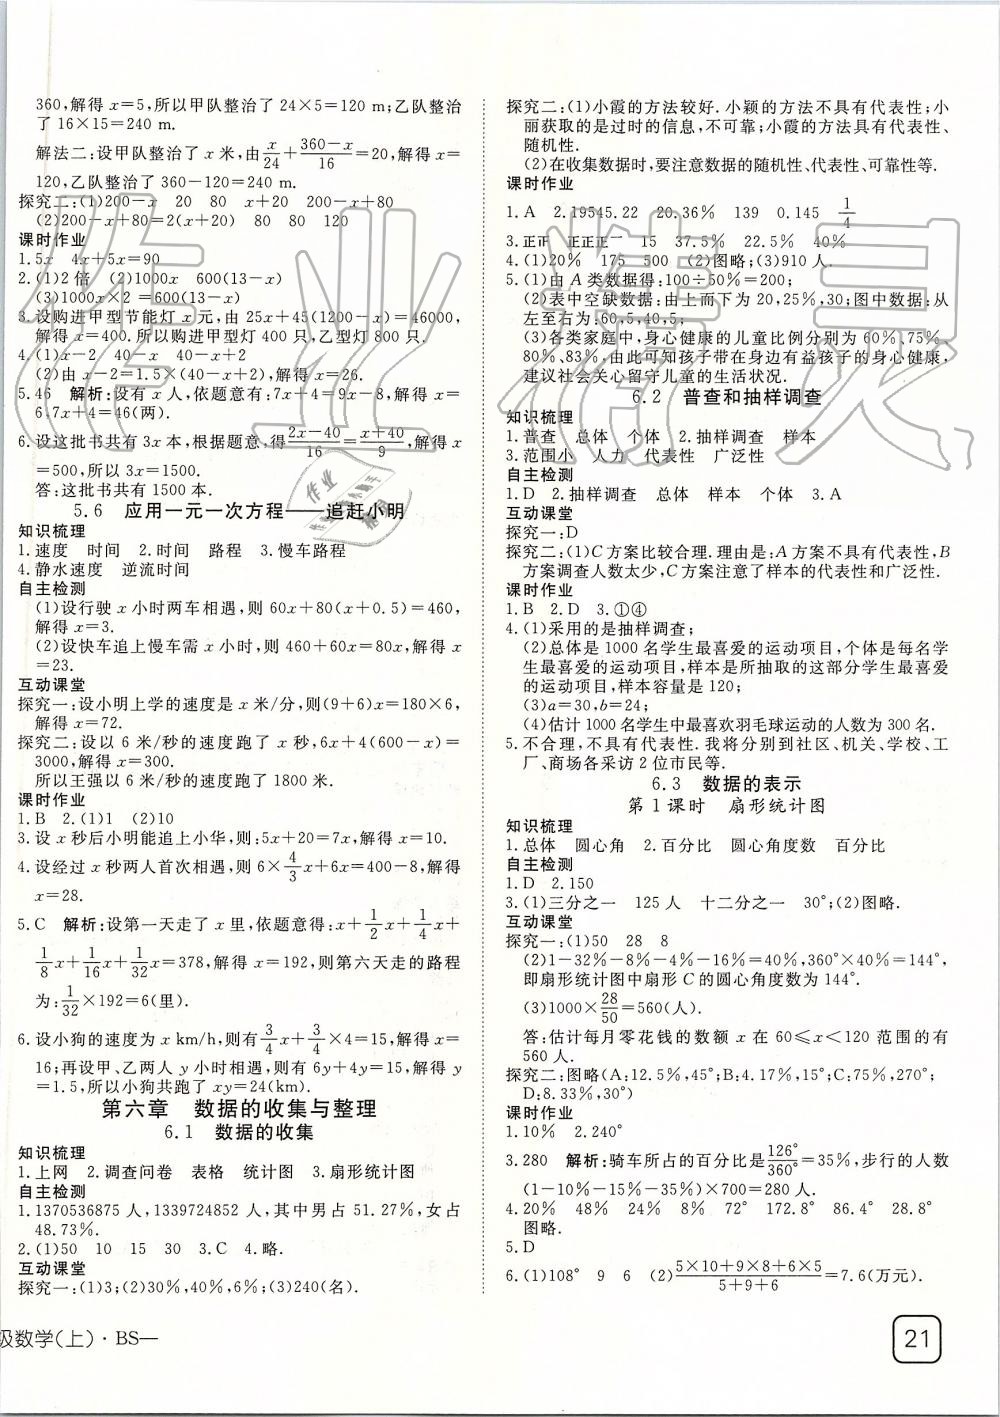 360,解得 x=5,所以甲队整治了 24×5=120 m;乙队整治
了 16×15=240 m.
解法二:设甲队整治了 x 米,由 x/24+(360-x)/16=20,解得 x=
120,乙队整治了 360-120=240 m.
探究二:(1)200-x 20 80 x+20 200-x+80
(2)200-x+80=2(x+20) 80 80 120
课时作业
1.5x 4x+5x=90
2.(1)2倍 (2)1000x 600(13-x)
(3)1000x×2=600(13-x)
3.设购进甲型节能灯 x 元,由 25x+45(1200-x)=46000,
解得 x=400.所以购进甲型灯 400 只,乙型灯 800 只.
4.(1)x-2 40-x 40-x+2
(2)由 x-2=1.5×(40-x+2),解得 x=26.
5.46 解析:设有 x 人,依题意有:7x+4=9x-8,解得 x=
6.7x+4=46(两).
6.设这批书共有 3x 本,根据题意,得(2x-40)/16=(x+40)/9,解得 x
=500,所以 3x=1500.
答:这批书共有 1500 本.
5.6 应用一元一次方程——追赶小明
知识梳理
1.速度 时间 2.时间 路程 3.慢车路程
4.静水速度 逆流时间
自主检测
(1)设行驶 x 小时两车相遇,则 60x+80(x+0.5)=460,
解得 x=3.
(2)设快车追上慢车需 x 小时,则 460+60x=80x,解得 x
=23.
互动课堂
探究一:设小明上学的速度是 x 米/分,则(9+6)x=180×6,
解得 x=72.
探究二:设以 6 米/秒的速度跑了 x 秒,6x+4(600-x)=
3000,解得 x=300.
所以王强以 6 米/秒的速度跑了 1800 米.
课时作业
1.B 2.(1)1 (2)10
3.设 x 秒后小明能追上小华,则:5x+20=7x,解得 x=10.
4.设经过 x 秒两人首次相遇,则 6×4/3x+6x=400-8,解得
x=28.
5.C 解析:设第一天走了 x 里,依题意得:x+1/2x+1/4x+
1/8x+1/16x+1/32x=378,解得 x=192,则第六天走的路程
为:1/32×192=6(里).
6.设小狗的速度为 x km/h,则有3/4x+3/4×4=15,解得 x=
16;再设甲、乙两人 y 小时相遇,则有 6y+4y=15,解得
y=1.5,所以小狗共跑了 xy=24(km).
第六章 数据的收集与整理
6.1 数据的收集
知识梳理
1.上网 2.调查问卷 表格 统计图 3.扇形统计图
自主检测
1.1370536875 人,1339724852 人,其中男占 51.27%,女占
48.73%.
2.(1)50 10 15 30 3.C 4.略.
互动课堂
探究一:(1)3;(2)30%,40%,6%;(3)240(名).
级数学(上)·BS—
探究二:(1)小霞的方法较好.小颖的方法不具有代表性;小
丽获取的是过时的信息,不可靠;小霞的方法具有代表性、
随机性.
(2)在收集数据时,要注意数据的随机性、代表性、可靠性等.
课时作业
1.A 2.19545.22 20.36% 139 0.145 1/4
3.正正 正正正𠄌 15 37.5% 22.5% 40%
4.(1)20% 175 500 (2)图略;(3)910 人.
5.(1)由 A 类数据得:100÷50%=200;
(2)表中空缺数据:由上而下为 20,25%,30;图中数据:从
左至右为:60,5,40,5;
(3)各类家庭中,身心健康的儿童比例分别为 60%,75%,
80%,83%,由此可知孩子带在身边有益孩子的身心健康,
建议社会关心留守儿童的生活状况.
6.2 普查和抽样调查
知识梳理
1.普查 总体 个体 2.抽样调查 样本
3.范围小 人力 代表性 广泛性
自主检测
1.D 2.抽样调查 总体 样本 个体 3.A
互动课堂
探究一:D
探究二:(1)C 方案比较合理.理由是:A 方案不具有代表性,B
方案调查人数太少,C 方案注意了样本的代表性和广泛性.
课时作业
1.B 2.D 3.①④
4.(1)采用的是抽样调查;
(2)总体是 1000 名学生最喜爱的运动项目,个体是每名学
生最喜爱的运动项目,样本是所抽取的这部分学生最喜爱
的运动项目,样本容量是 120;
(3)a=30,b=24;
(4)估计 1000 名学生中最喜欢羽毛球运动的人数为 300 名.
5.不合理,不具有代表性.我将分别到社区、机关、学校、工
厂、商场各采访 2 位市民等.
6.3 数据的表示
第 1 课时 扇形统计图
知识梳理
1.总体 圆心角 2.百分比 圆心角度数 百分比
自主检测
1.D 2.150
3.(1)三分之一 125 人 十二分之一 30°;(2)图略.
互动课堂
探究一:(1)50 28 8
(2)1-32%-8%-4%-16%=40%,360°×40%=144°,
即扇形统计图中扇形 C 的圆心角度数为 144°.
(3)1000×28/50=560(人).
答:估计每月零花钱的数额 x 在 60≤x<120 范围的有
560 人.
探究二:图略(A:12.5%,45°;B:4.17%,15°;C:75%,270°;
D:8.33%,30°)
课时作业
1.10% 2.240°
3.280 解析:骑车所占的百分比是126°/360°=35%,步行的人数
(1-10%-15%-35%)×700=280 人.
4.20% 48% 24% 8% 72° 172.8° 86.4° 28.8°
图略.
5.D
6.(1)108° 9 6 (2)(5×10+9×8+6×5)/(5+9+6)=7.6(万元).
21
作业精灵